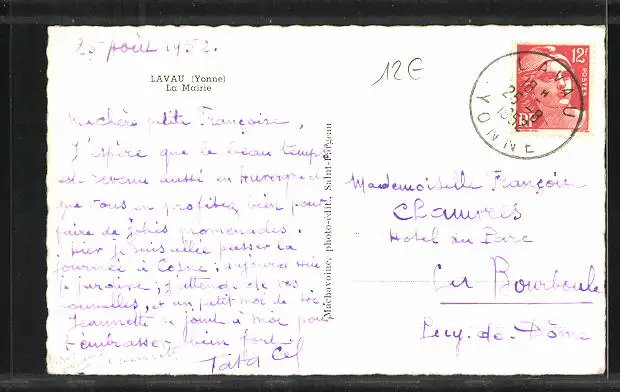 25 Août 1952.
LAVAU (Yonne)
La Mairie
Ma chère petite Françoise,
J'espère que le beau temps
est revenu aussi en Auvergne et
que vous en profitez bien pour
faire de jolies promenades.
Hier je suis allée passer la
journée à Cosne ; aujourd'hui
je jardine ; j'attends de vos
nouvelles, et un petit mot de toi
Jeannette se joint à moi pour
t'embrasser bien fort.
Tata
Machavoine, photo-édit., Saint-Fargeau
12€
12F
POSTES
LAVAU
18 H
25 -8
1952
YONNE
Mademoiselle Françoise
Hotel du Parc
La Bourboule
Puy-de-Dôme